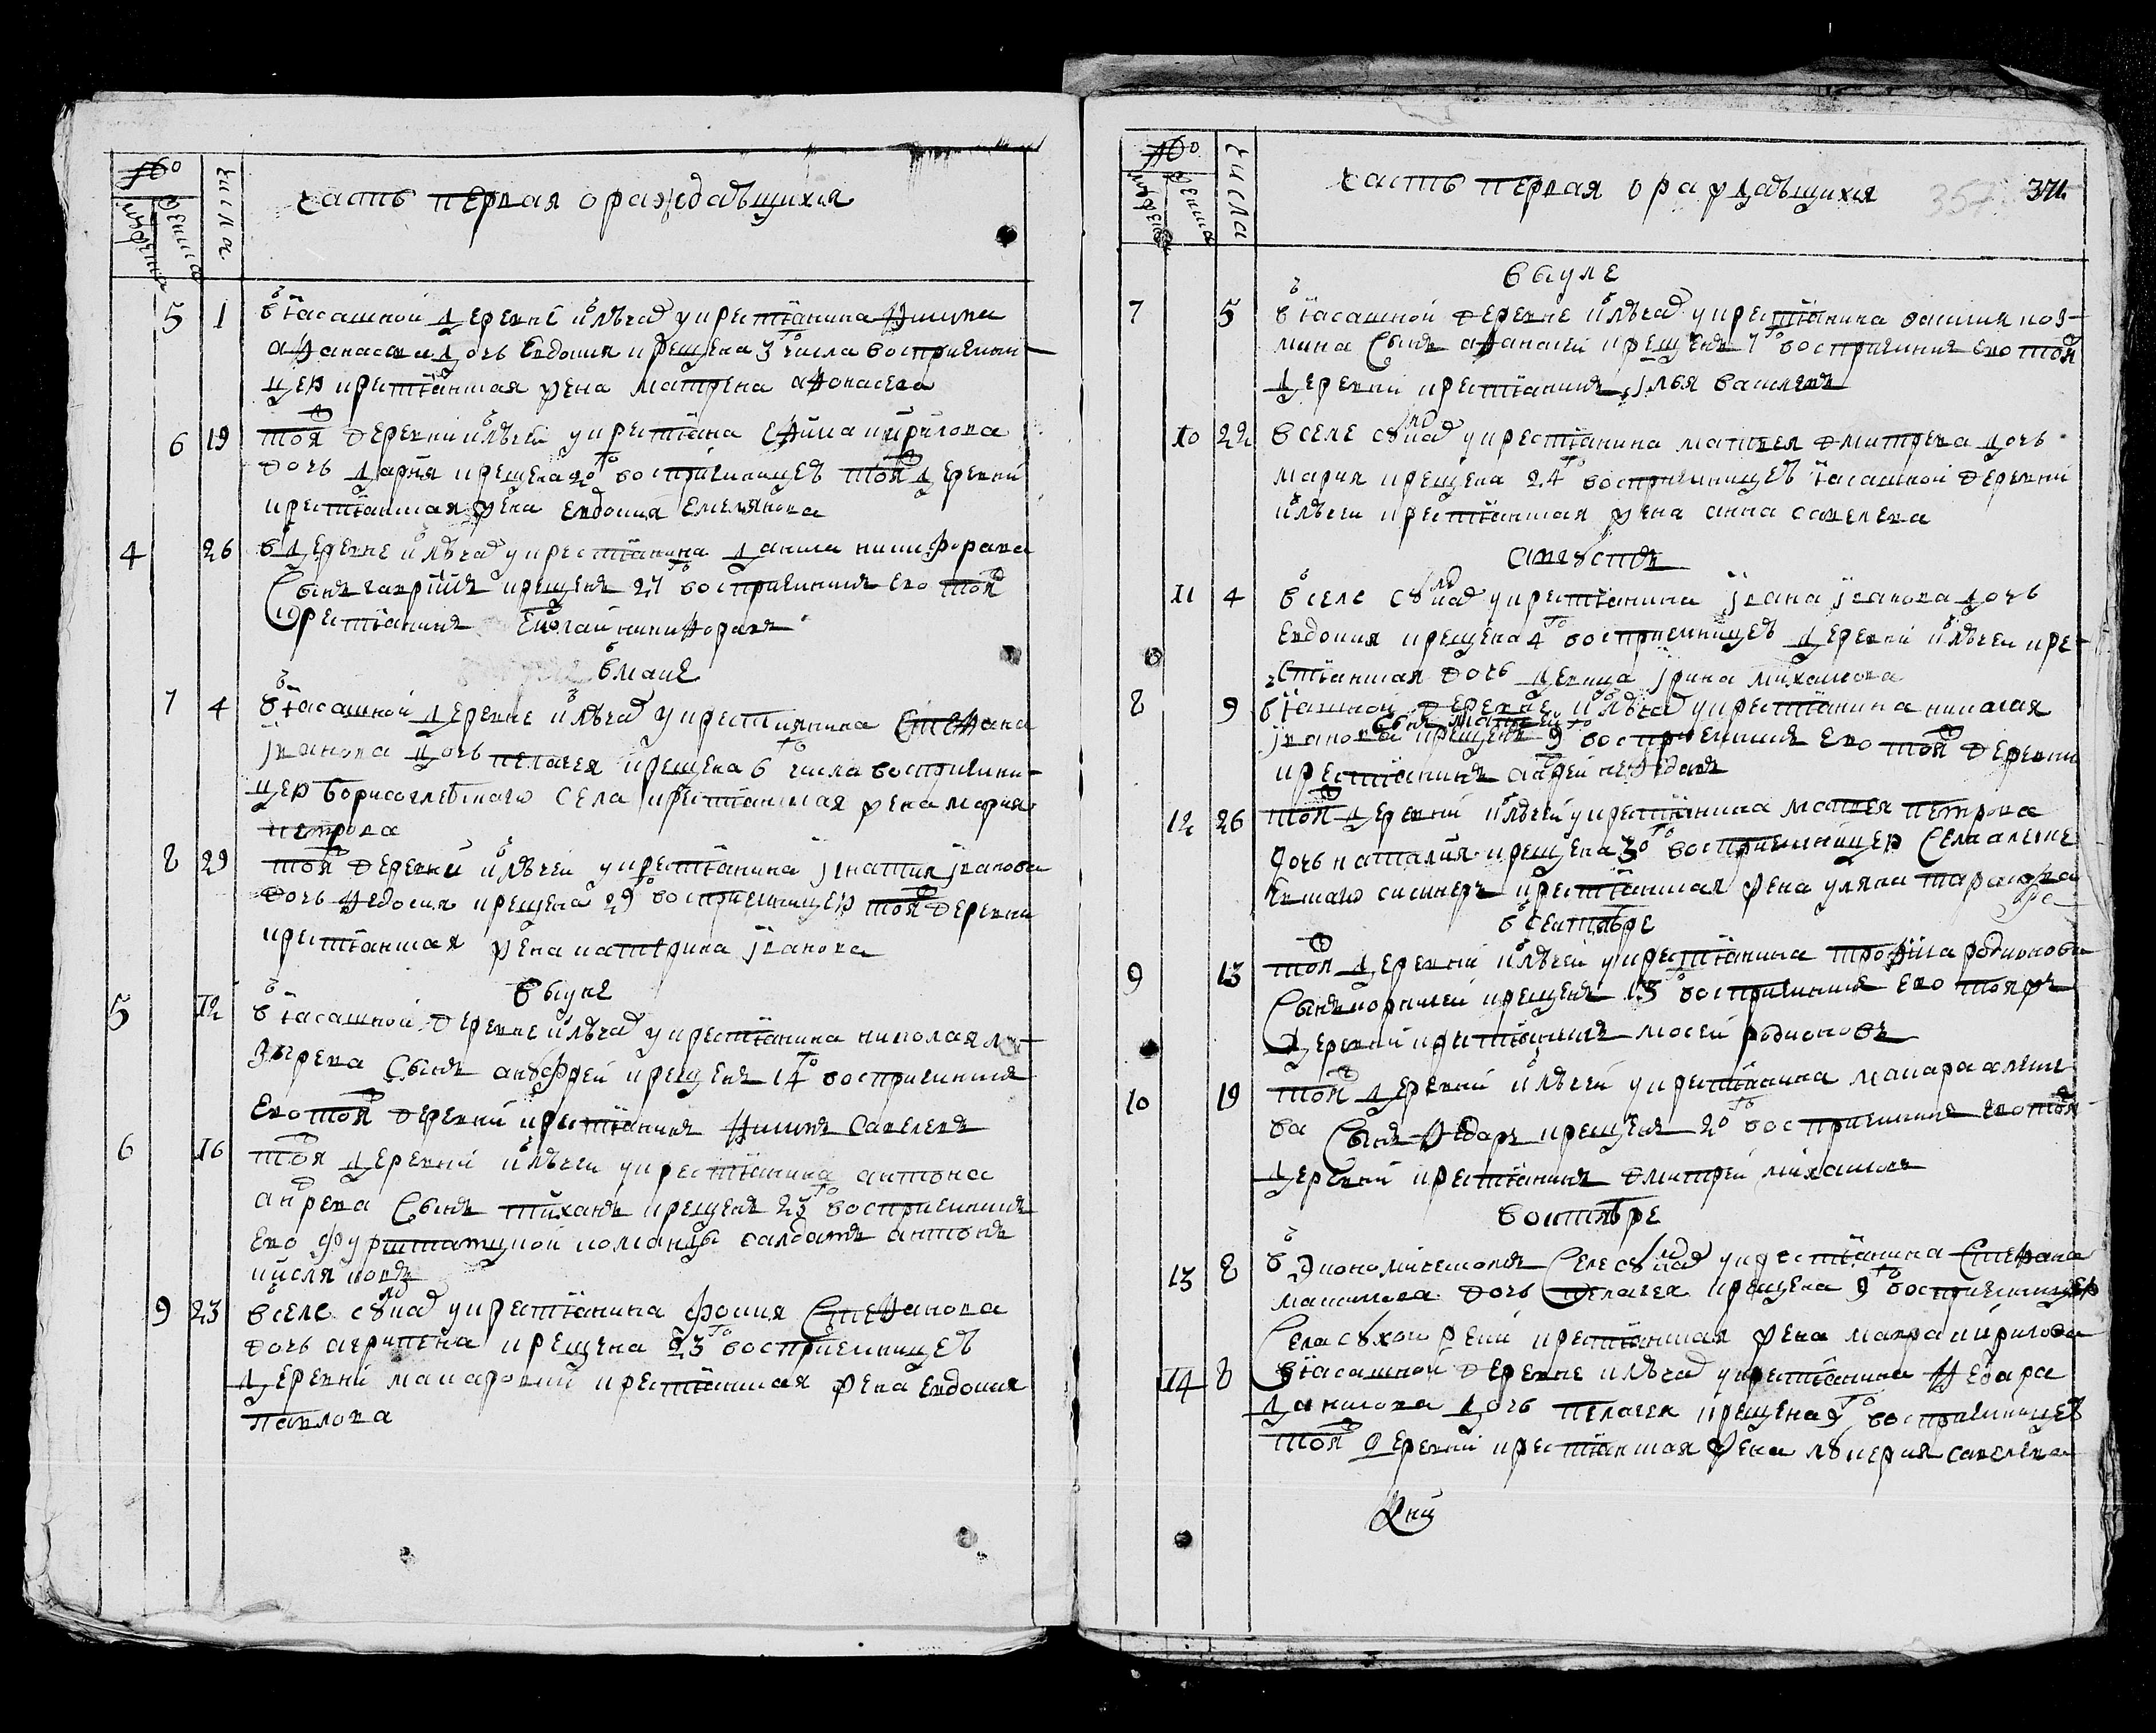 №
мужеска
женска
числа
часть первая о раждающихся
5 1 в ясашной деревне ключах у крестьянина филипа
афанасева дочь Евдокия крещена 3 числа восприемни-
цею крестьянская жена матрена афонасева
6 19 тоя деревни ключей у крестьяна ефима кирилова
дочь дария крещена 20 го восприемницею тоя деревни
крестьянская жена Евдокия Емелянова
4 26 в деревне ключах у крестьянина данила никифорова
сынъ гаврилъ крещенъ 27 го восприемникъ его тоя
крестьянинъ никифоровъ
в маие
7 4 в ясашной деревне ключах у крестиянина стефана
іванова дочь пелагея крещена 6 го числа восприемни-
цею борисоглебского села крестьянская жена мария
петрова
8 29 тоя деревни ключей у крестьянина ігнатия іванова
дочь федосия крещена 29 го восприемницею тоя деревни
крестьянская жена катерина іванова
в июне
5 12 в ясашной деревне ключах у крестьянина николая
сынъ андрей крещенъ 14 го восприемникъ
его тоя деревни крестьянинъ филипъ савелевъ
6 16 тоя деревни ключей у крестьянина антона
андрева сынъ тиханъ крещенъ 23 го восприемникъ
его команды салдатъ антонъ

9 23 в селе у крестьянина фомы стефанова
дочь агрипена крещена 23 го восприемницею
деревни макаровки крестьянская жена евдокия
павлова
№
мужеска
женска
числа
часть первая о раждающихся
357 371
в июле
7 5 в ясашной деревне ключах у крестьянина василия коз-
мина сынъ афанасей крещенъ 7 го восприемникъ его тоя
деревни крестьянинъ, ілья василевъ
10 22 в селе у крестьянина матвея дмитрева дочь
мария крещена 24 го восприемницею ясашной деревни
ключей крестьянская жена анна савелева
августъ
11 4 в селе у крестьянина івана іванова дочь
евдокия крещена 4 го восприемницею деревни ключей кре-
стьянская дочь девица ірина михайлова
8 9 в ясашной деревне ключах у крестьянина николая
іванова сынъ матвей крещенъ 9 го восприемникъ его тоя деревни
крестьянинъ андрей нефедовъ
12 26 тоя деревни ключей у крестьянина матвея петрова
дочь наталия крещена 30 го восприемницею села
крестьянская жена уляна тарасова
в сентябре
9 13 тоя деревни ключей у крестьянина трофима родионова
сынъ корнилей крещенъ 15 го восприемникъ его тояжъ
деревни крестьянинъ мосей родионовъ
10 19 тоя деревни ключей у крестьянина макара алексе
ва сынъ федоръ крещенъ 20 го восприемникъ его тоя
деревни крестьянинъ дмитрей михайловъ
в октябре
13 8 в селе у крестьянина стефана
дочь пелагея крещена 9 го восприемницею
села крестьянская жена мавра кирилова
14 8 в ясашной деревне ключах у крестьянина федора
данилова дочь пелагея крещена 9 го восприемницею
тоя деревни крестьянская жена лукерия савелева